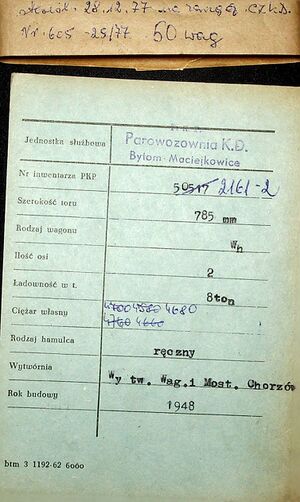 28.12.77 na
Nr. 605-25/77 50 wag
Jednostka służbowa
Parowozownia K.D.
Bytom-Maciejkowice
Nr inwentarza PKP 50517 2161-2
Szerokość toru 785 mm
Rodzaj wagonu Wh
Ilość osi 2
Ładowność w t. 8ton
Ciężar własny 4700 4580 4680
4760 4660
Rodzaj hamulca ręczny
Wytwórnia Wy tw. Wag.i Most. Chorzów
Rok budowy 1948
btm 3 1192-62 6000